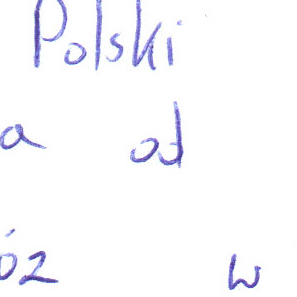 Polski
a od
óz w